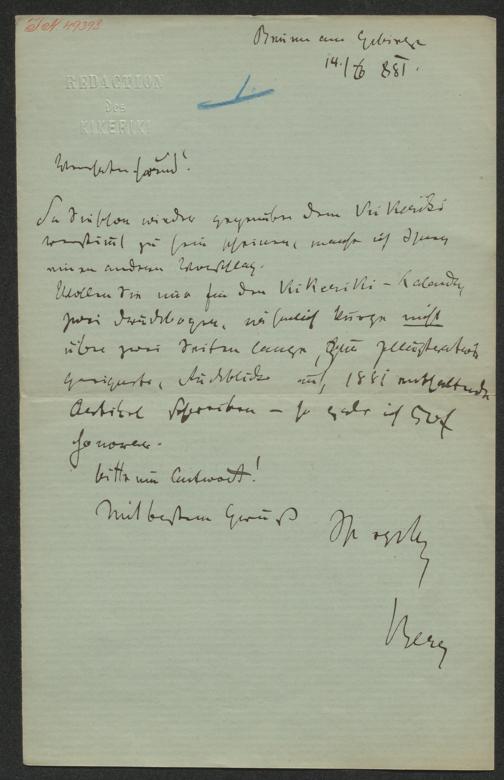 I.N. 49393
Brunn am Gebirge
14./6 881.
REDACTION
Des
KIKERIKI
Verehrter Freund!
Da Sie schon wieder gegenüber dem Kikeriki
verstimt zu sein scheinen, mache ich Ihnen
einen anderen Vorschlag.
Wollen Sie mir für den Kikeriki-Kalender
zwei Druckbogen, nämlich kurze nicht
über zwei Seiten lange, zur Illustration
geeignete, Rückblicke auf 1881 enthaltende
Artikel schreiben – so gebe ich 50 f
Honorar.
bitte um Antwort!
Mit bestem Gruß
Ihr
Berg